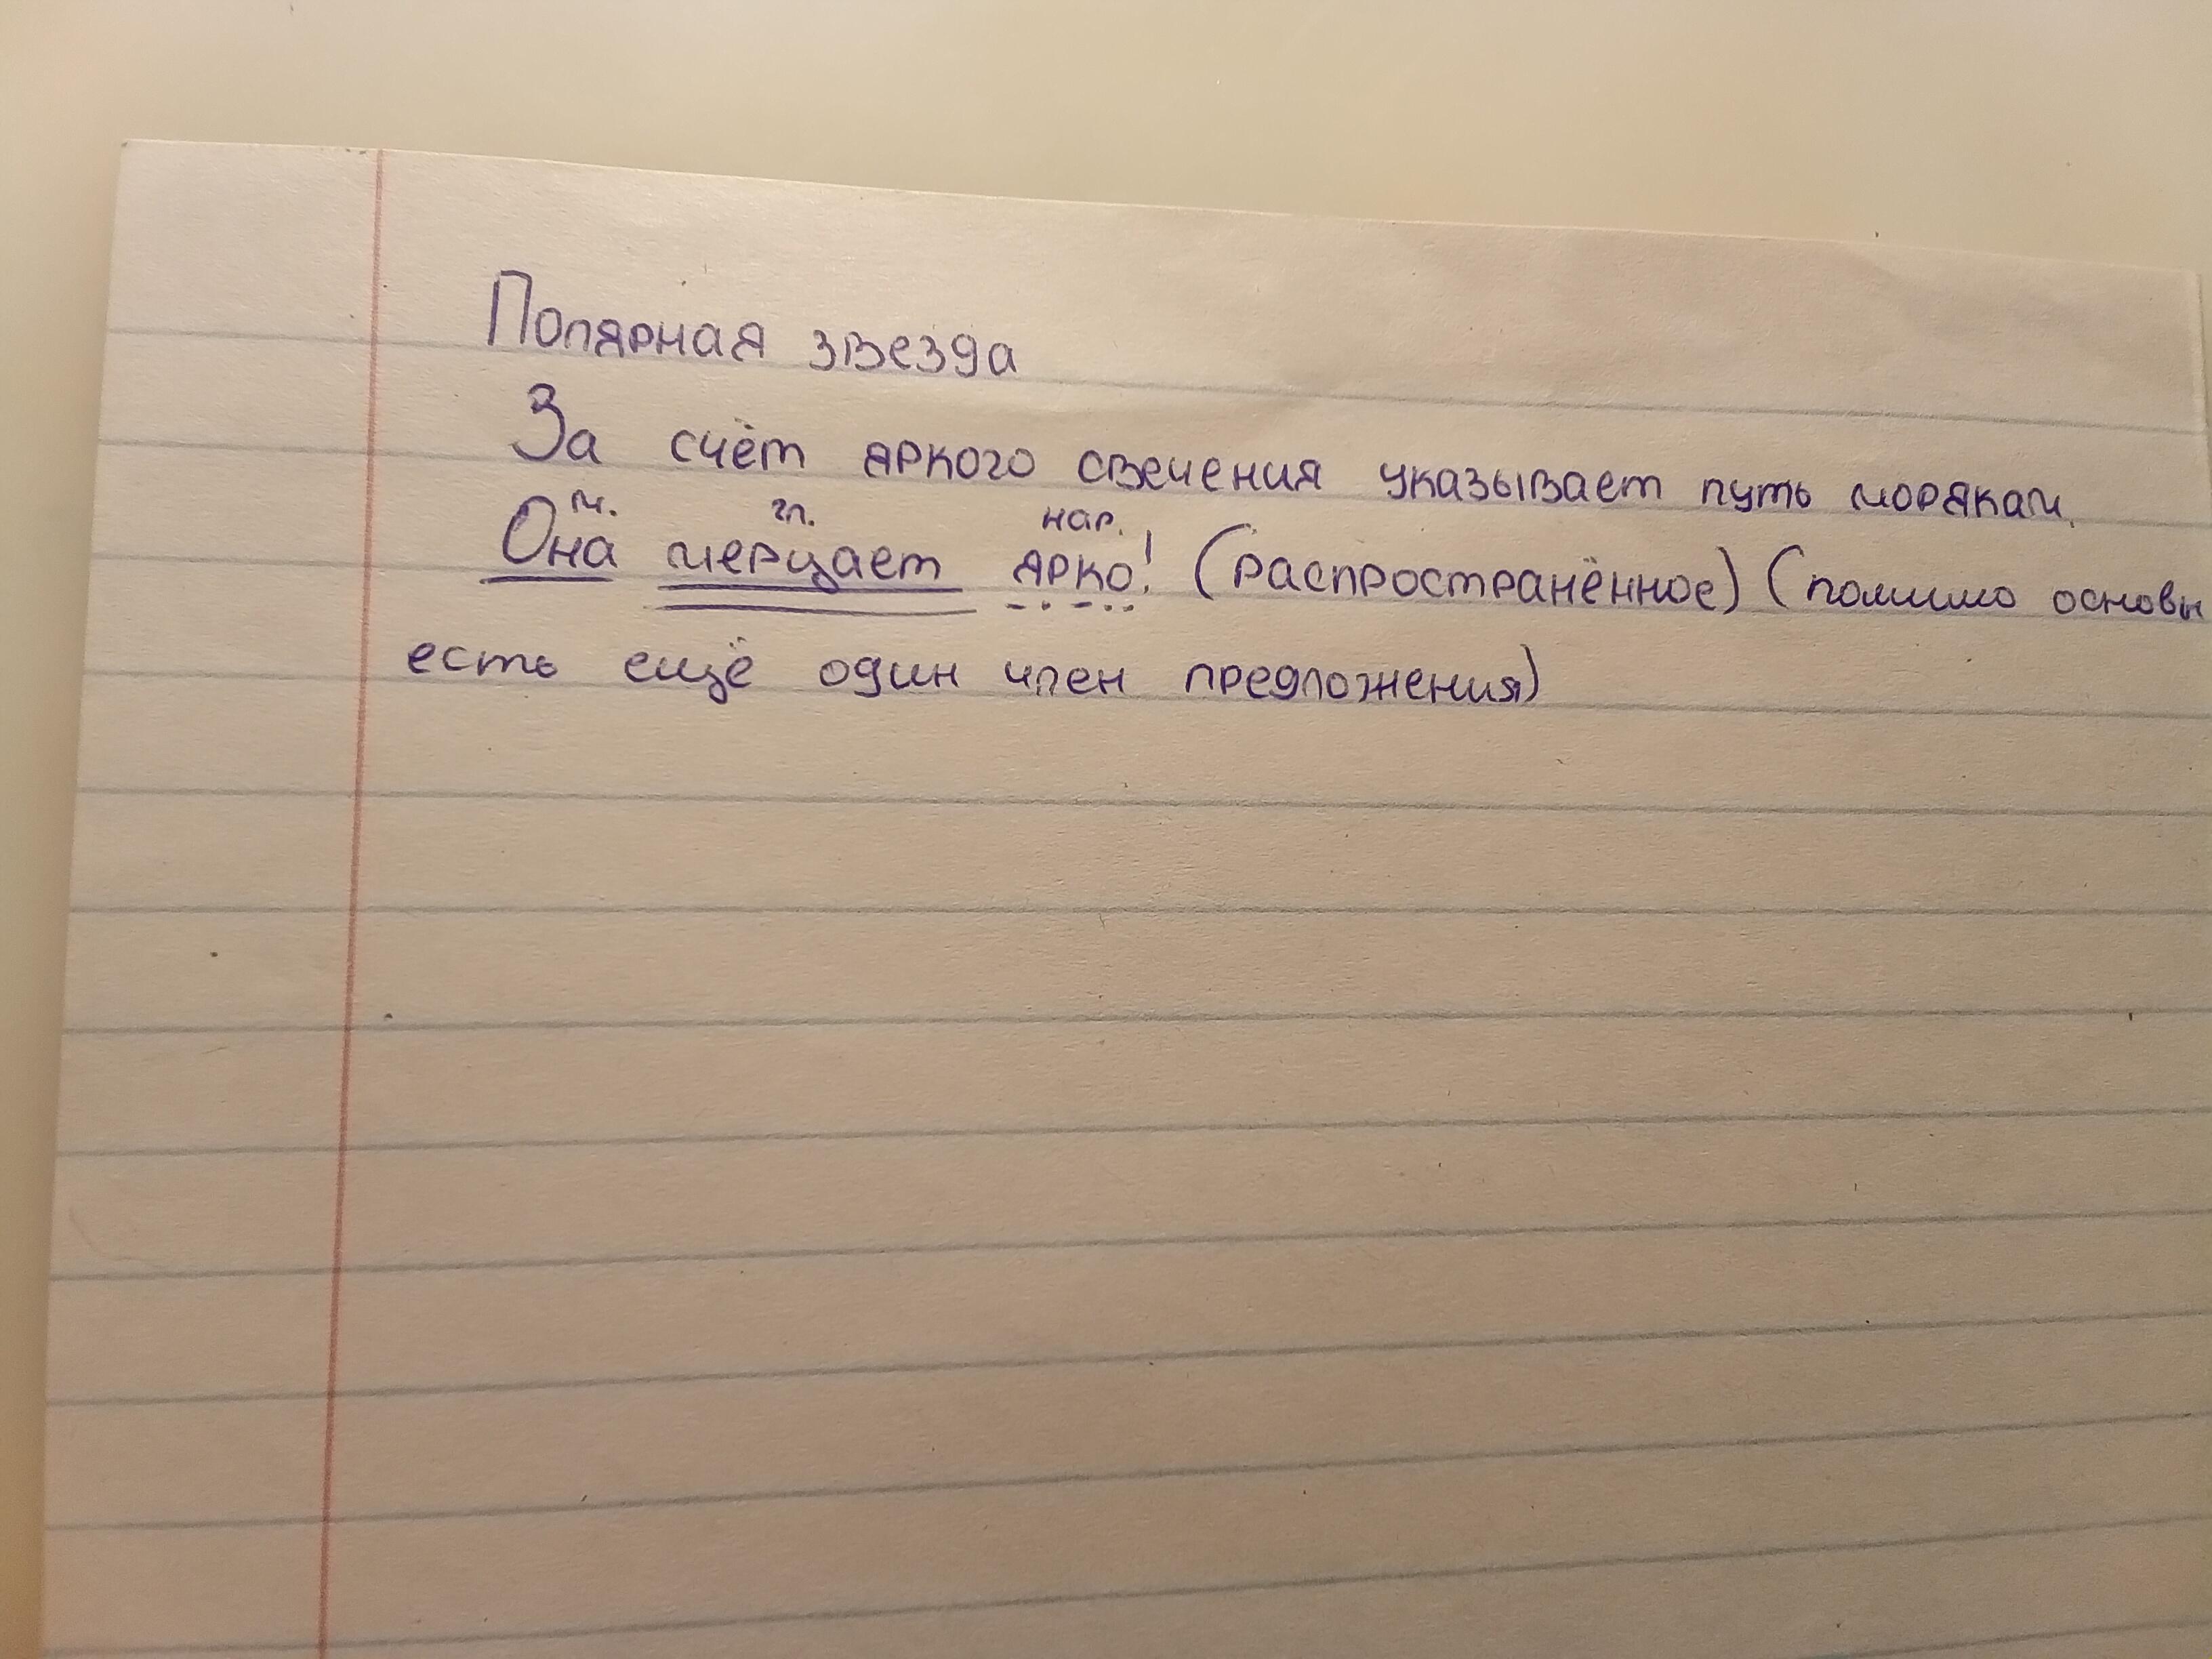 Полярная звезда
За счёт яркого свечения указывает путь морякам.
м. гл. нар.
Она мерцает ярко! (распространённое) (помимо основы
есть ещё один член предложения)